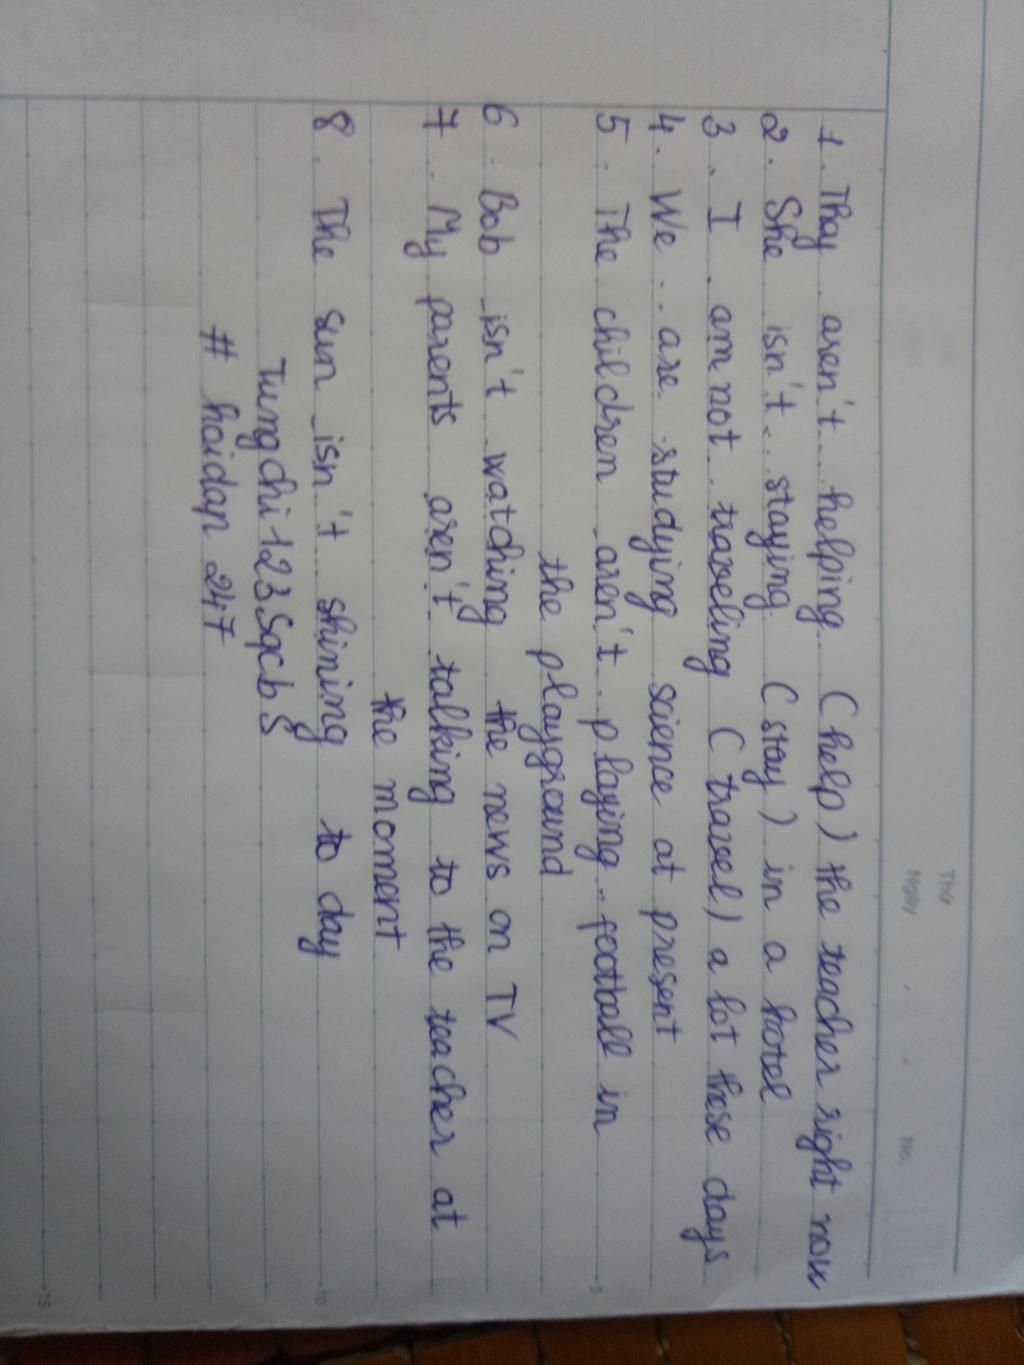 Thứ
Ngày . . No.
1. They aren't helping (help) the teacher right now
2. She isn't staying (stay) in a hotel
3. I am not traveling (travel) a lot these days
4. We are studying science at present
5. The children aren't playing football in
the playground
6. Bob isn't watching the news on TV
7. My parents aren't talking to the teacher at
the moment
8. The sun isn't shining to day
# hoidap 247
5
10
15